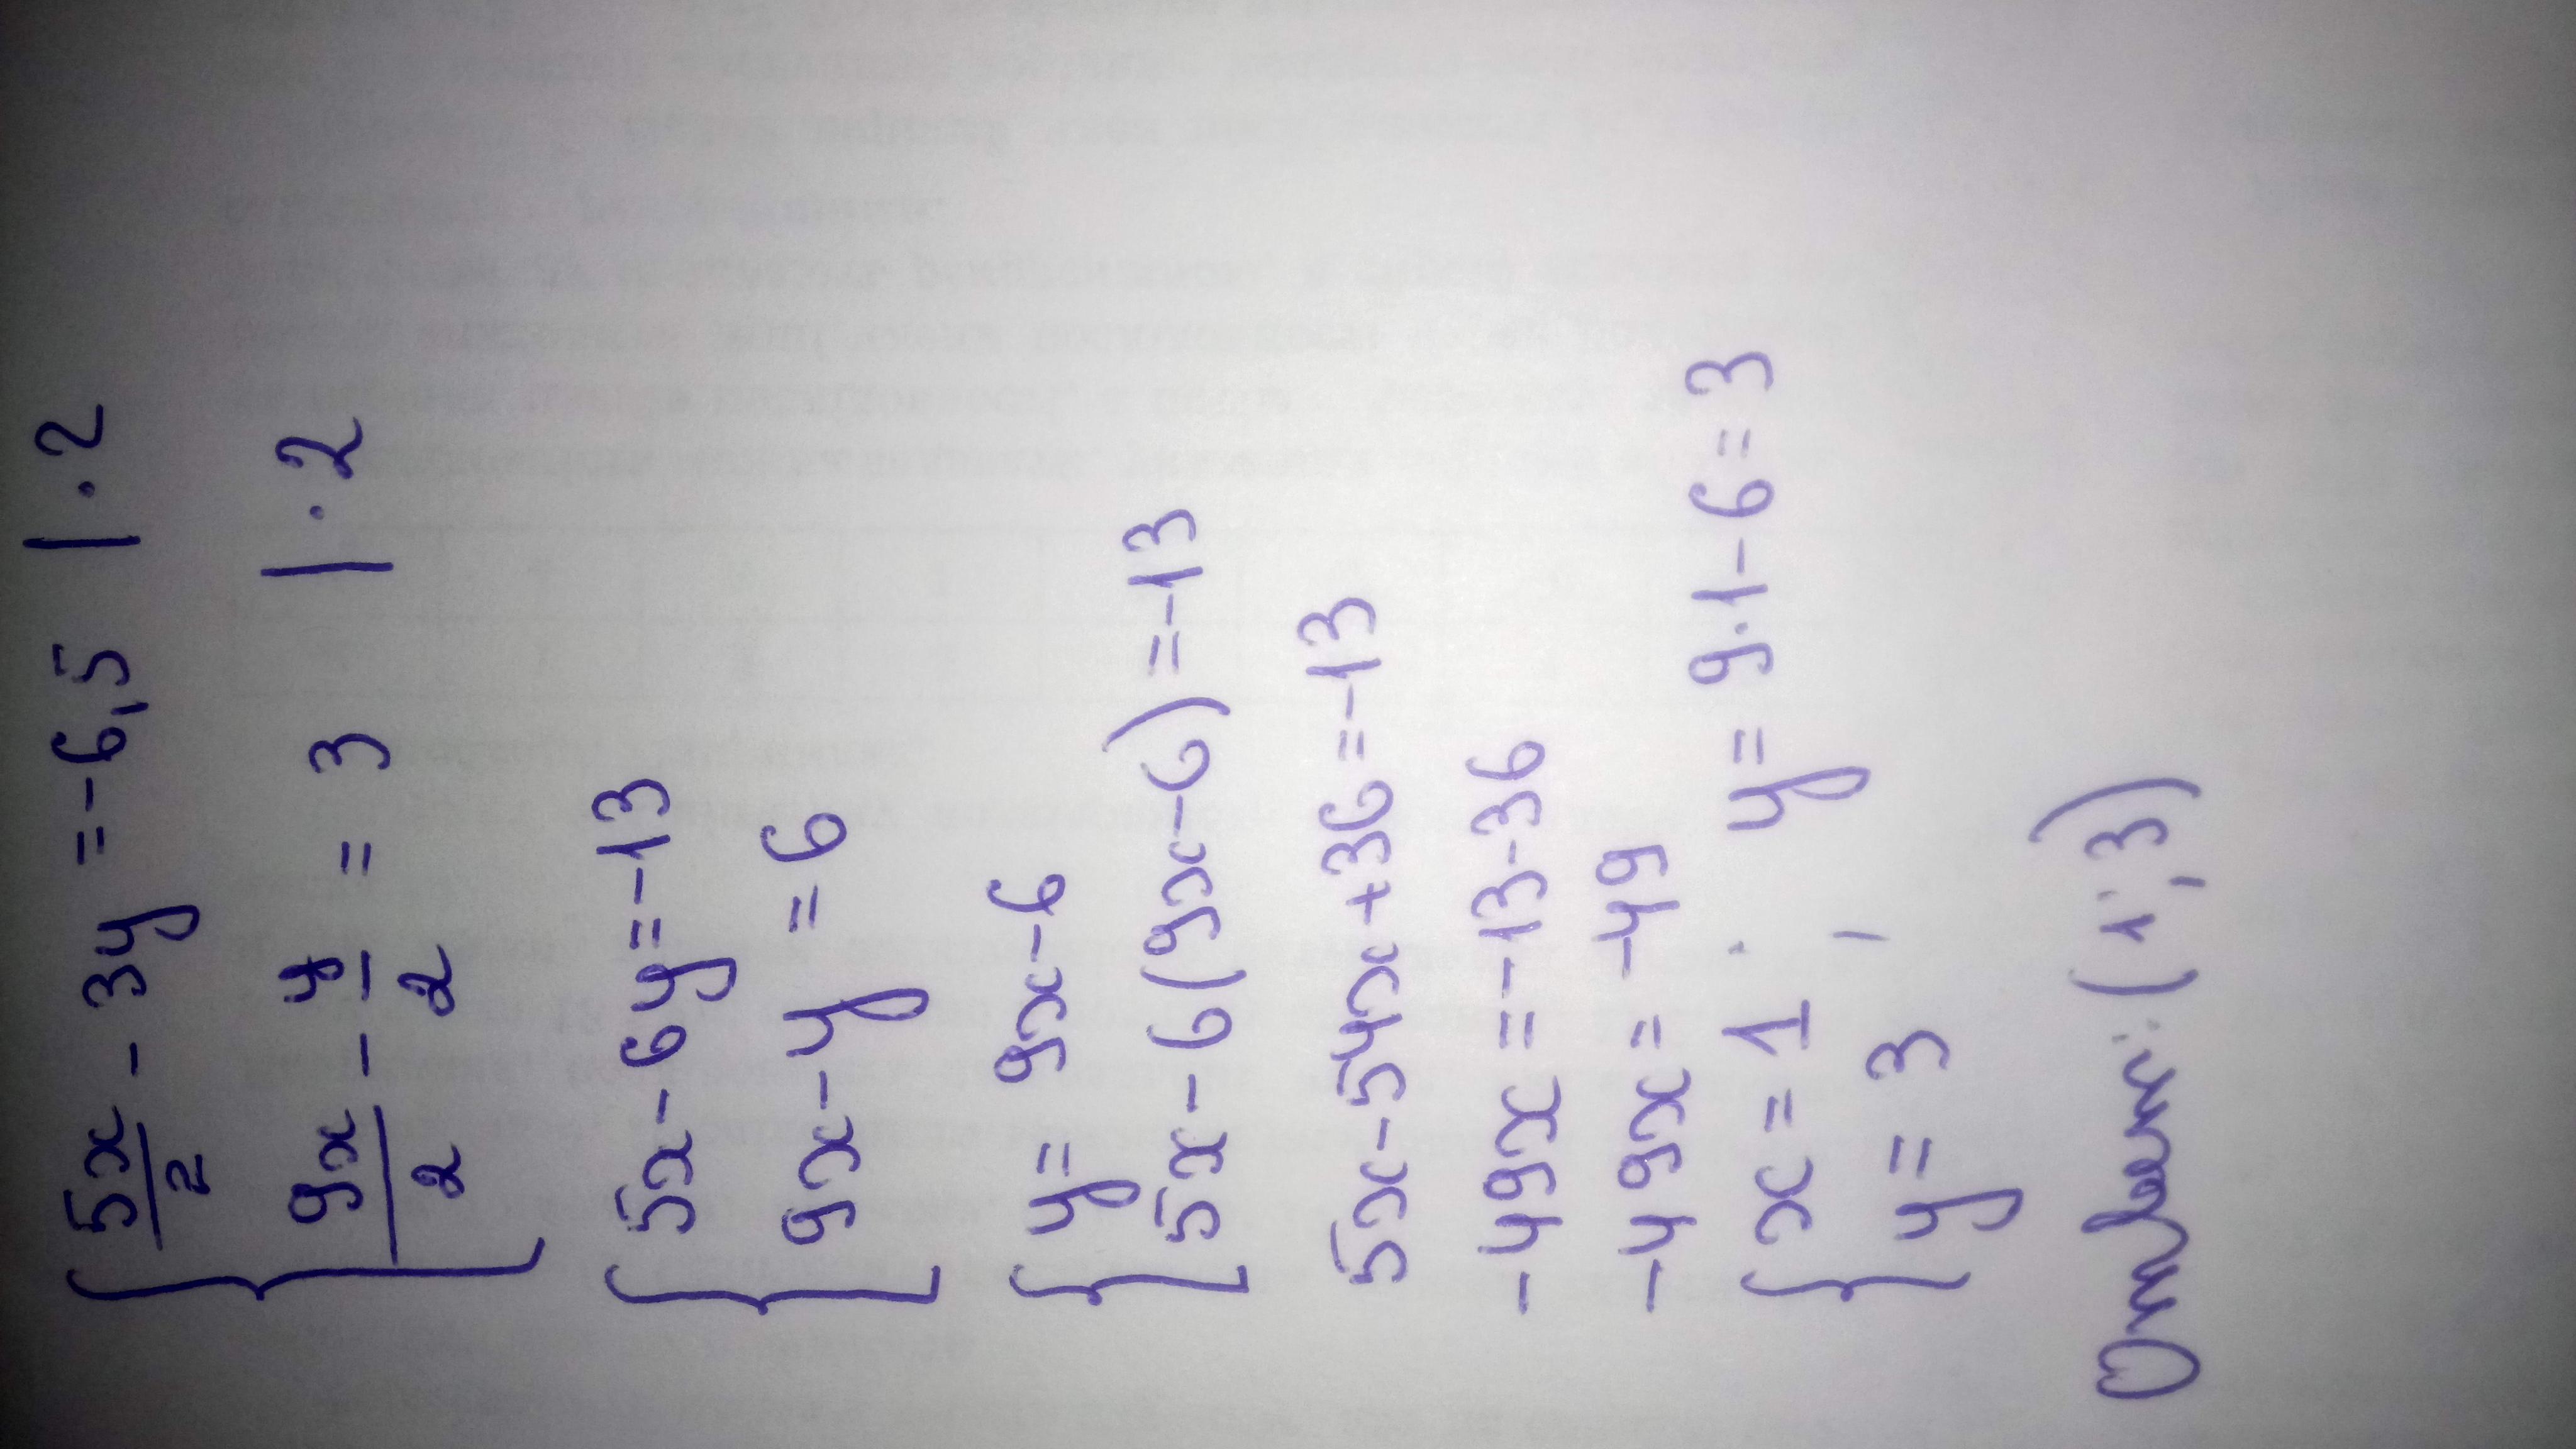 5x/2 - 3y = -6,5 | · 2
9x/2 - y/2 = 3 | · 2
5x - 6y = -13
9x - y = 6
y = 9x - 6
5x - 6(9x - 6) = -13
5x - 54x + 36 = -13
-49x = -13 - 36
-49x = -49
x = 1; y = 9 · 1 - 6 = 3
y = 3
Ответ: (1; 3)